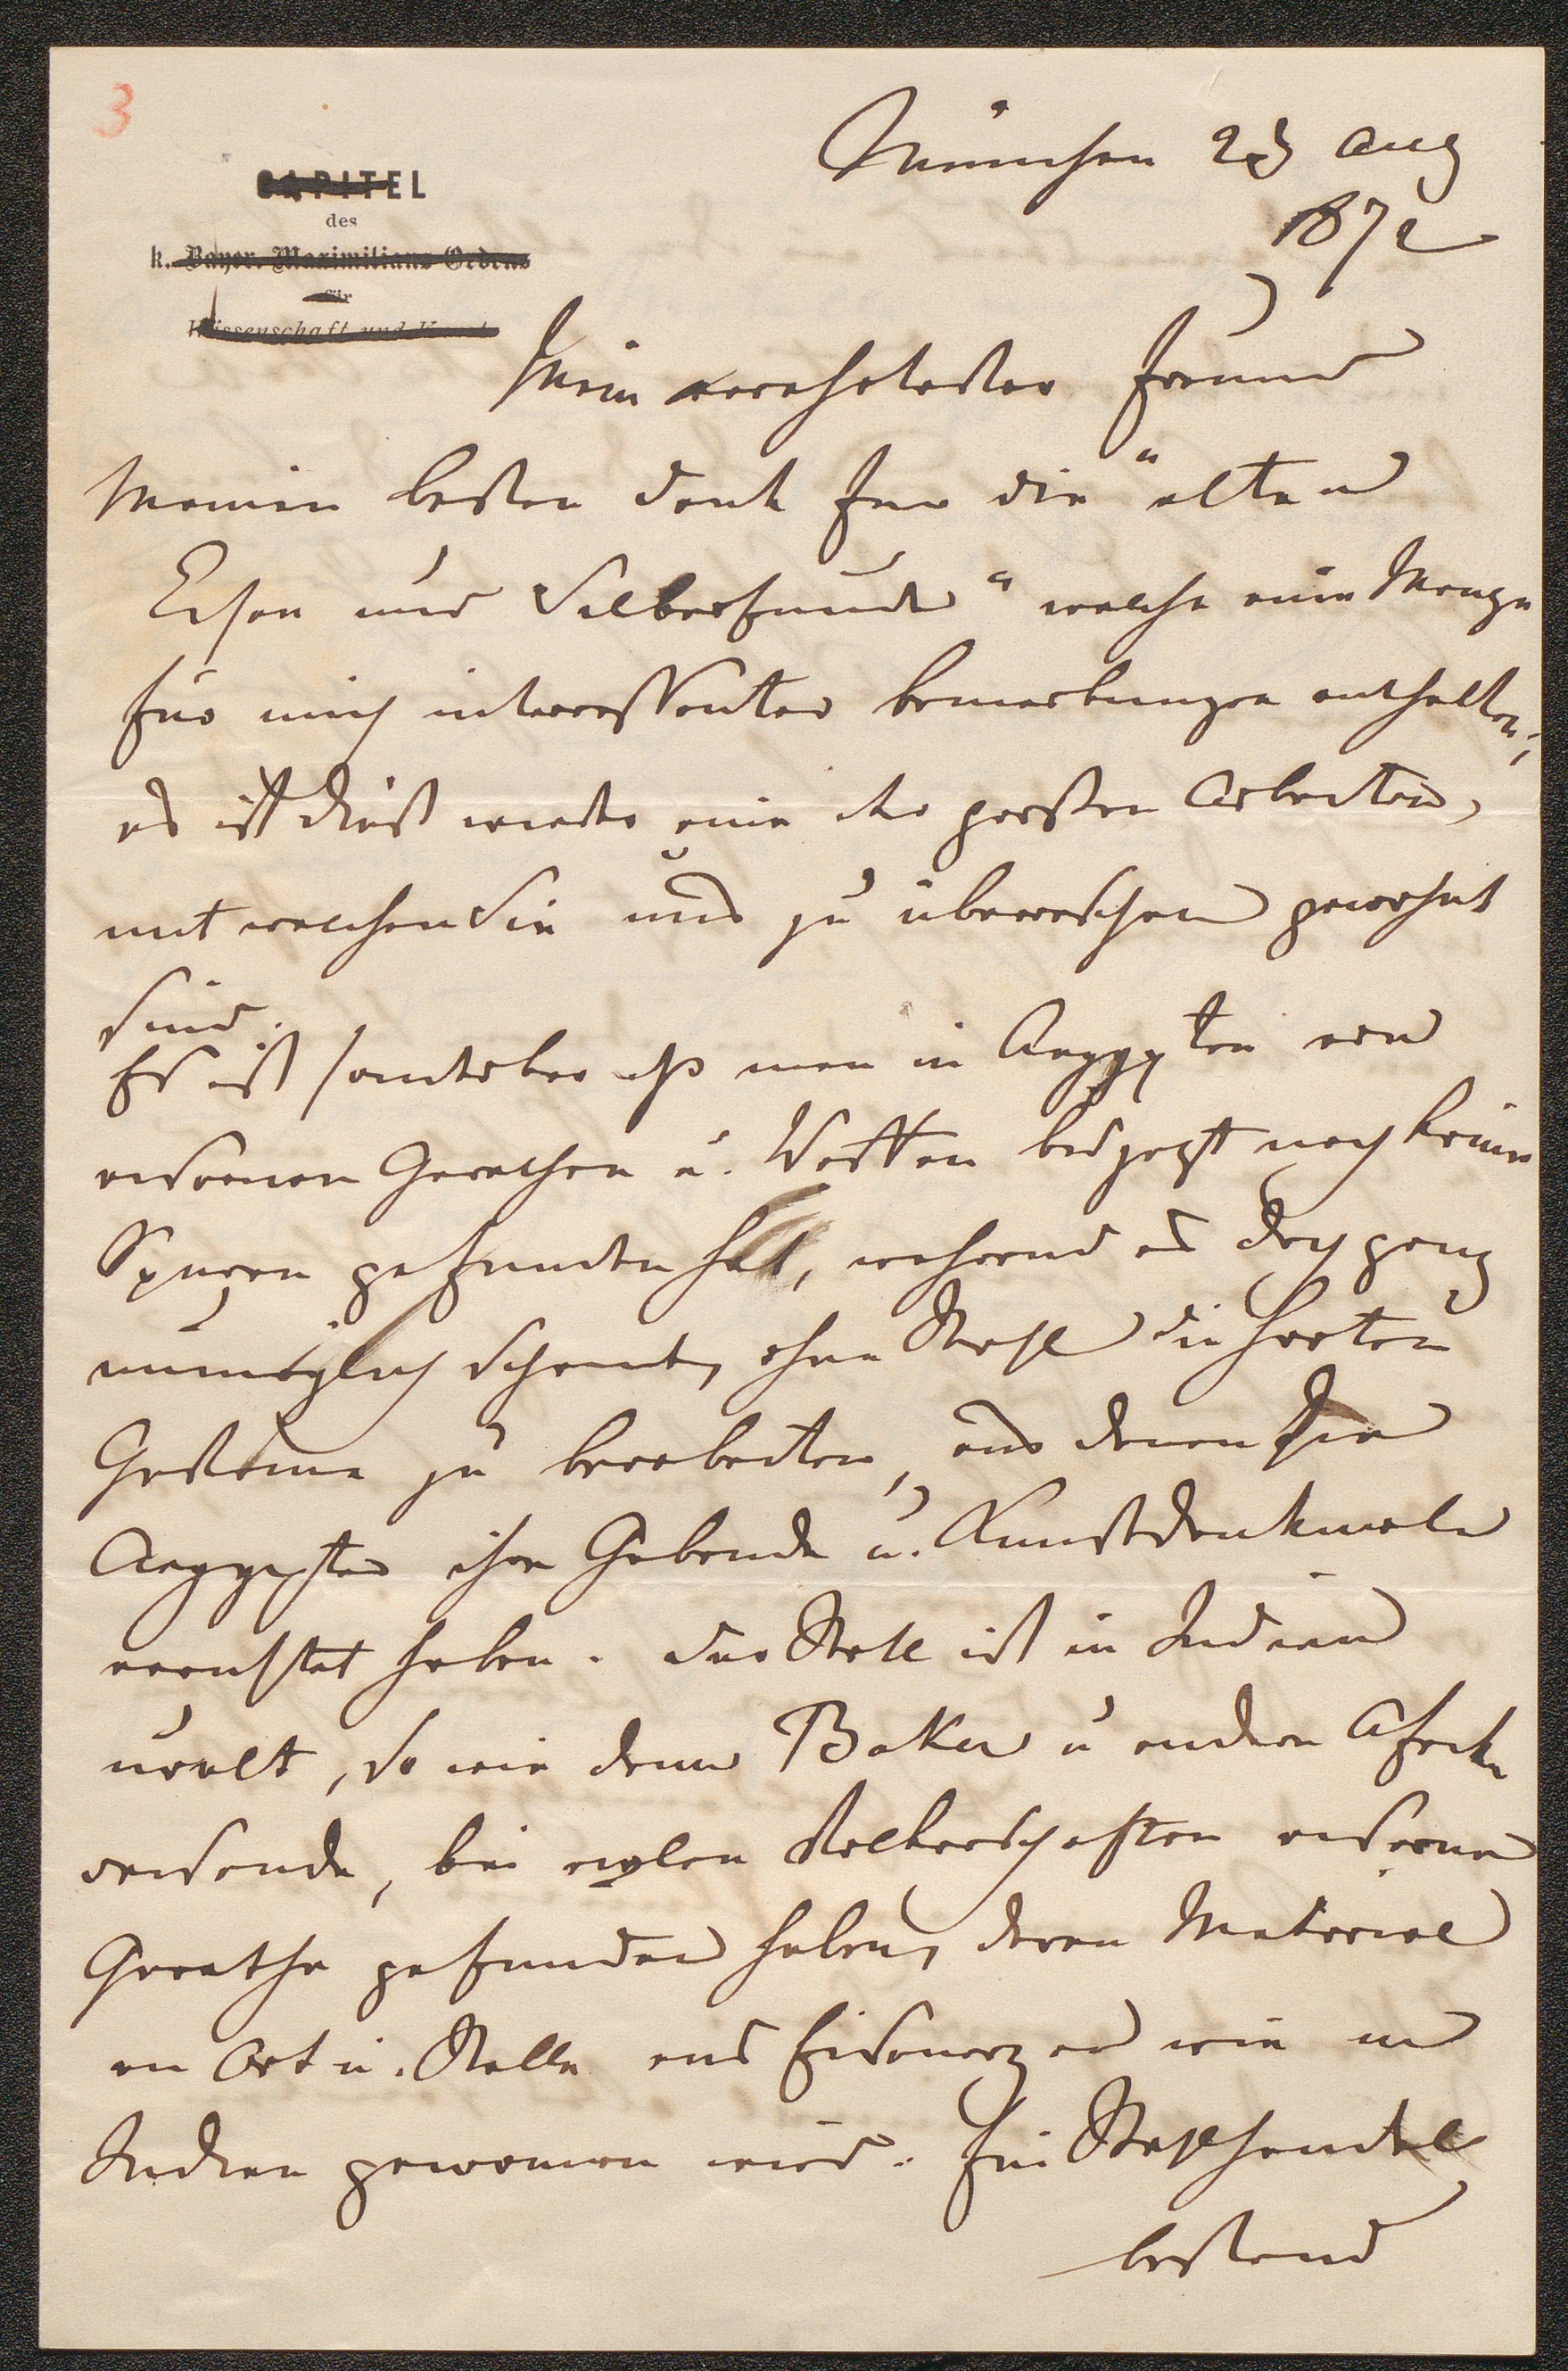 3
CAPITEL
des
k. Bayer. Maximilians-Ordens
für
Wissenschaft und Kunst
München 28 Aug
1872
Mein verehrtester Freund
Meinen besten Dank für die "alten
und Silberfunde" welche eine Menge
für mich interessanter Bemerkungen enthalten;
es ist dieß wieder eine der großen Arbeiten,
mit welchen Sie uns zu überraschen gewohnt
sind.
Es ist sonderbar daß man in Aegypten von
eisernen Geräthen u. Waffen bis jetzt noch keine
Spuren gefunden hat, während es doch ganz
unmöglich scheint, ohne Stahl die harten
Gesteine zu bearbeiten, aus denen die
Aegypter ihre Gebäude u. Kunstdenkmale
errichtet haben. Der Stahl ist in Indien
uralt, so wie denn Baker u andere Afrika
reisende, bei vielen Völkerschaften eiserne
Geräthe gefunden haben, deren Material
an Ort u. Stelle aus Eisenerzen wie in
Indien gewonnen wird. Ein Stahlhandel
bestand